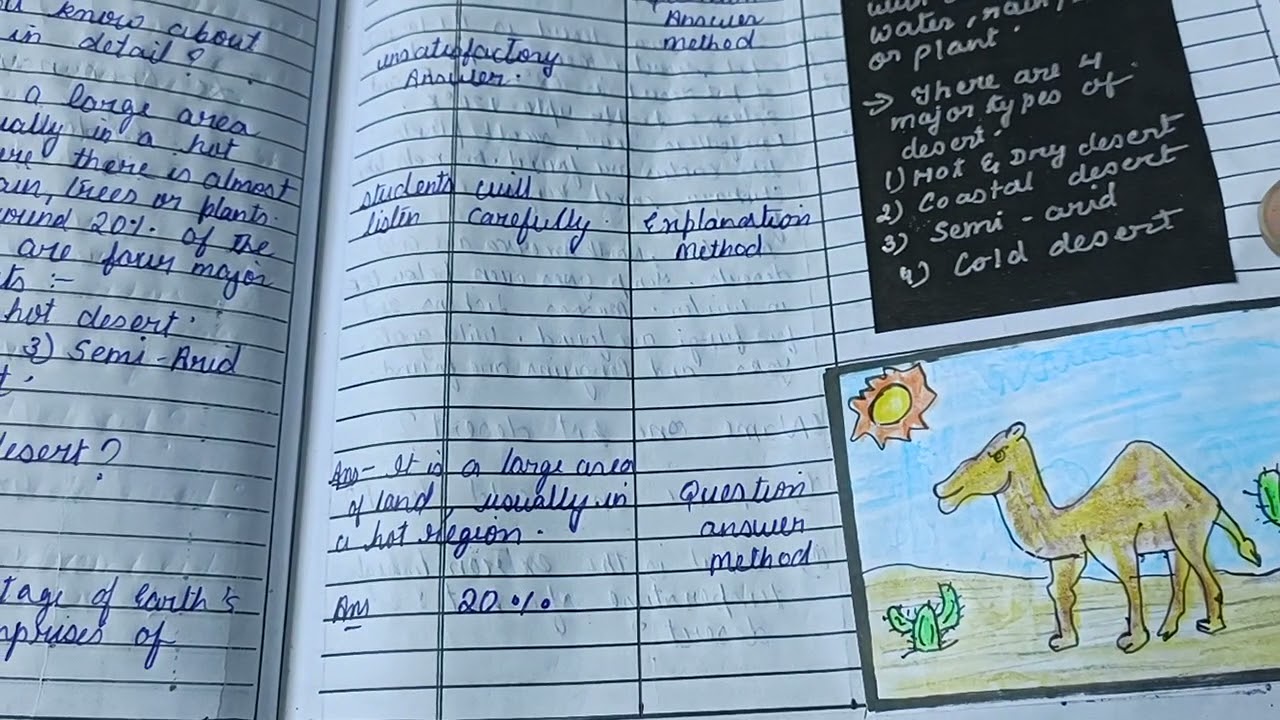 know about
in detail?
a large area
ually in a hot
ere there is almost
ain, trees or plants.
ound 20% of the
are four major
ts :-
hot desert.
3) Semi-Arid
t.
esert?
tage of Earth's
mprises of
unsatisfactory
Answer.
students will
listen carefully.
Ans- It is a large area
of land, usually in
a hot region.
Ans 20%
Answer
method
Explanation
Method
Question
answer
method
water, rain,
or plant.
→ There are 4
major types of
desert.
1) Hot & Dry desert
2) Coastal desert
3) Semi-arid
4) Cold desert